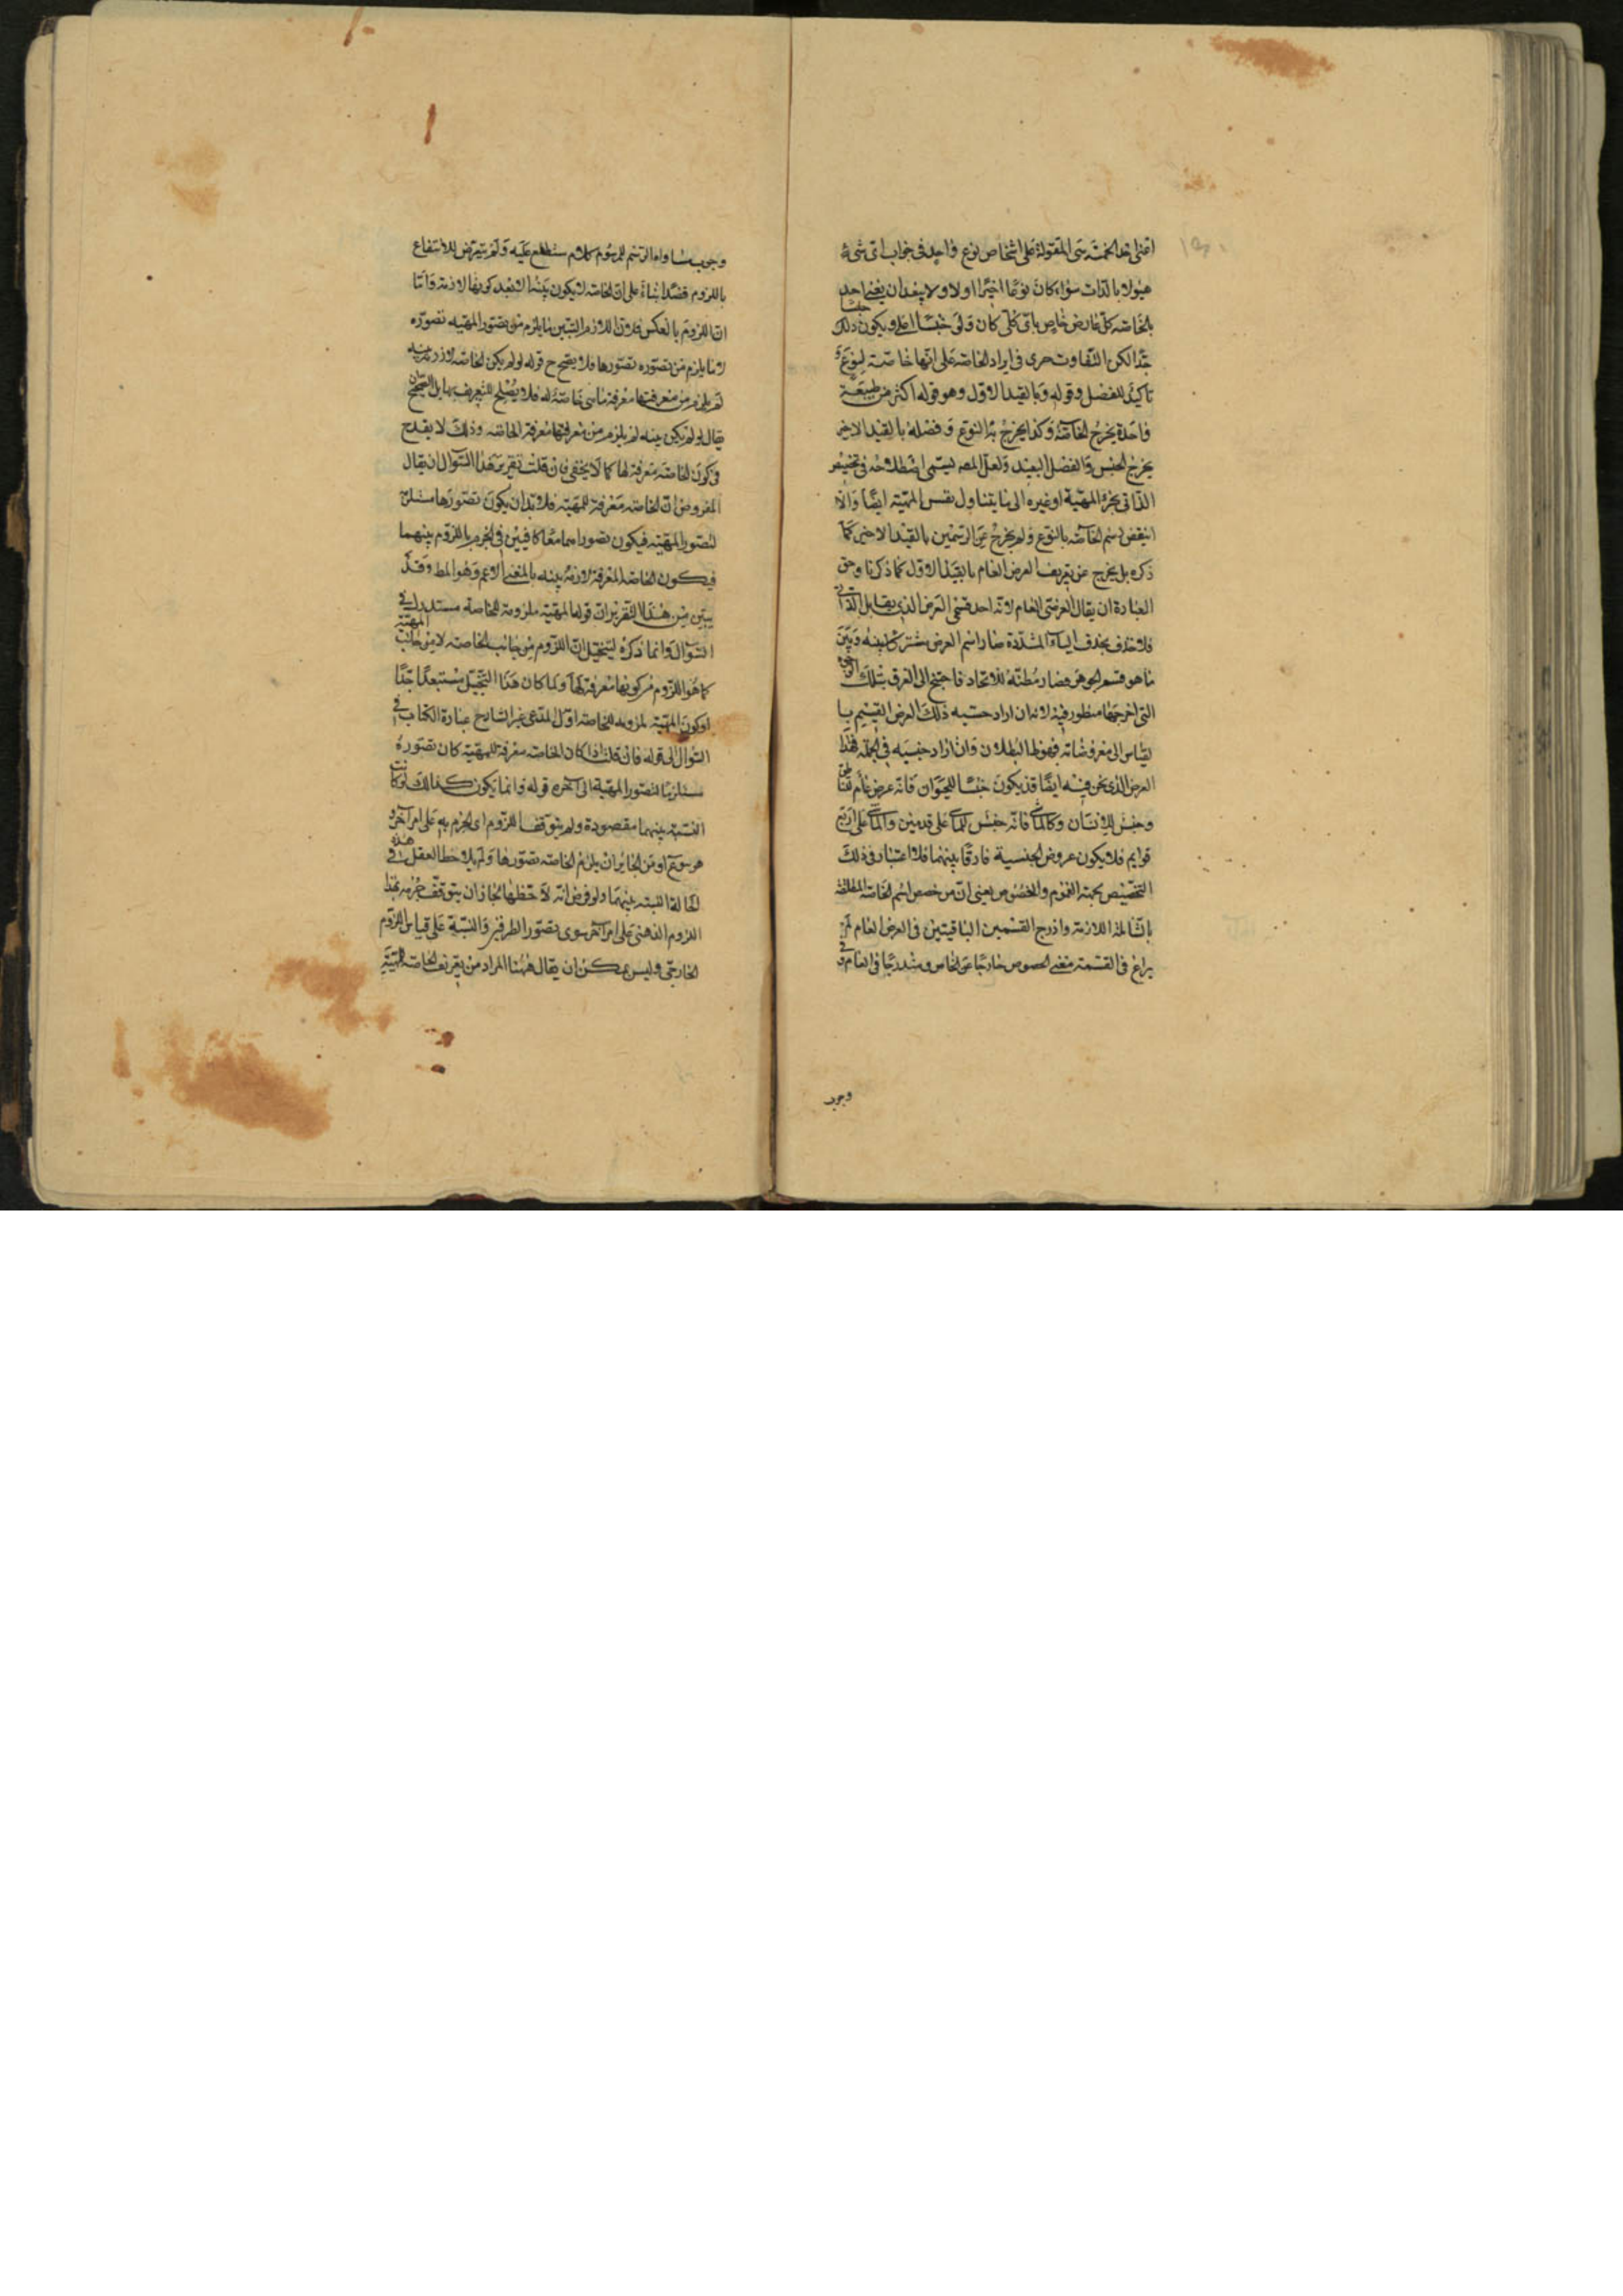 احدى الخمسة هى المقولة على اشخاص نوع واحد فى جواب اى شىء
هو لا بالذات سواء كان نوعًا اخيرًا اولا ولا يبعدان يعنى احد
بالخاصه كل عارض خاص باى كلى كان ولى جنسًا اعلى ويكون ذلك
جنسا
جدًا لكن التفاوت جرى فى ايراد الخاصه على انها خاصة لنوع و
تاكيد للفصل وقوله وبالقيد الاول وهو قوله اكثر من طبيعة
واحدة يخرج الخاصّة وكذا يخرج به النوع وفصله بالقيد الاخير
يخرج الجنس والفصل البعيد ولعلّ المص ليسمى اصطلاحه فى تخصيص
الذاتى بجزء المهية او غيره الى ما يتناول نفس المهية ايضًا والا
انتقض رسم الخاصّة بالنوع ولم يخرج عن الرسمين بالقيد الاخير كما
ذكره بل يخرج عن تعريف العرض العام بالقيد الاول كما ذكرنا وحق
العبارة ان يقال العرضى العام لانه احد قسمى العرض الذى يقابل الذاتى
فلا حذف بحذف الياء المشددة صار اسم العرض مشترك بينه وبين
ما هو قسم الجوهر فصار مظنّة للاتحاد فاحتج الى الفرق بتلك الوجوه
التى اخرجها منظور فيه لانه ان اراد حسبه ذلك العرض القسيم با
لقياس الى معروضاته فهو ظ البطلان وان اراد جنسيه فى الجملة فهذا
العرض الذى نحن فيه ايضًا قد يكون جنسًا للحيوان فانه عرض عام للناطق
وجنس للانسان وكالماشى فانه جنس للماشى على قدمين والماشى على اربع
قوايم فلا يكون عروض الجنسية فارقًا بينهما فلا اعتبار فى ذلك
التخصيص بجهة العموم والخصوص يعنى ان من خصص اسم الخاصّة المطلقة
بالشاملة اللازمة وادرج القسمين الباقيتين فى العرض العام لم
يراع فى القسمة معنى الخصوص خارجًا عن الخاص ومندرجًا فى العام و فى
وجوب
وجوب مساواه الرسم للمرسوم كلام ستطلع عليه ولم يتعرض للانتفاع
باللزوم قصدًا بناءً على ان الخاصّة لا يكون بينه الا بعد كونها لازمة وامّا
ان اللزوم بالعكس فلان اللازم البيّن ما يلزم من تصور المهيه تصوّره
لا ما يلزم من تصوّره تصوّرها فلا يصح ح قوله لو لم يكن الخاصّه لازمة بينه
لم يلزم من معرفتها معرفة ماهى خاصّة له فلا يصلح للتعريف بها بل الصحيح ان
يقال لو لم يكن بينه لم يلزم من معرفتها معرفة الخاصّه وذلك لا يقدح
فى كون الخاصّه معرفة لها كما لا يخفى فان قلت تقرير هذا السؤال ان يقال
المفروض ان الخاصّه معرفة للمهيّة فلا بد ان يكون تصوّرها مستلزمًا
لتصور المهيّه فيكون تصوراهما معًا كافيين فى الجزم باللزوم بينهما
فيكون الخاصّة المعرفة لازمة بينه بالمعنى الاعم وهو المط وقد
يبين من هذا التقرير ان قولها المهيّه ملزومة للخاصة مستدرك فى
السؤال وانما ذكره ليتخيل ان اللزوم من جانب الخاصه لا من جانب
المهيّة
كما هو اللزوم من كونها معرفة لها ولما كان هذا التخيل مستبعدًا جدًّا
او كون المهيّة ملزومه للخاصّه اول المدعى غير الشارح عبارة الكتاب فى
السؤال الى قوله فان قلت اذا كان الخاصه معرفة للمهيّة كان تصوره
مستلزمًا لتصور المهيّة الى آخره قوله وانما يكون كذالك لو كانت
النسبة بينهما مقصودة ولم يتوقف اللزوم اى الجزم به على امر آخر و
هو متم او من الجايز ان يلزم الخاصه تصوّرها ولم يلاحظ العقل فى هذه
الحالة النسبة بينهما ولو فرض انه لاحظها لجاز ان يتوقف جزمه بهذا
اللزوم الذهنى على امر آخر سوى تصوّر الطرفين والنسبة على قياس اللزوم
الخارجى وليس يمكن ان يقال ههنا المراد من تعريف الخاصّه للمهيّة